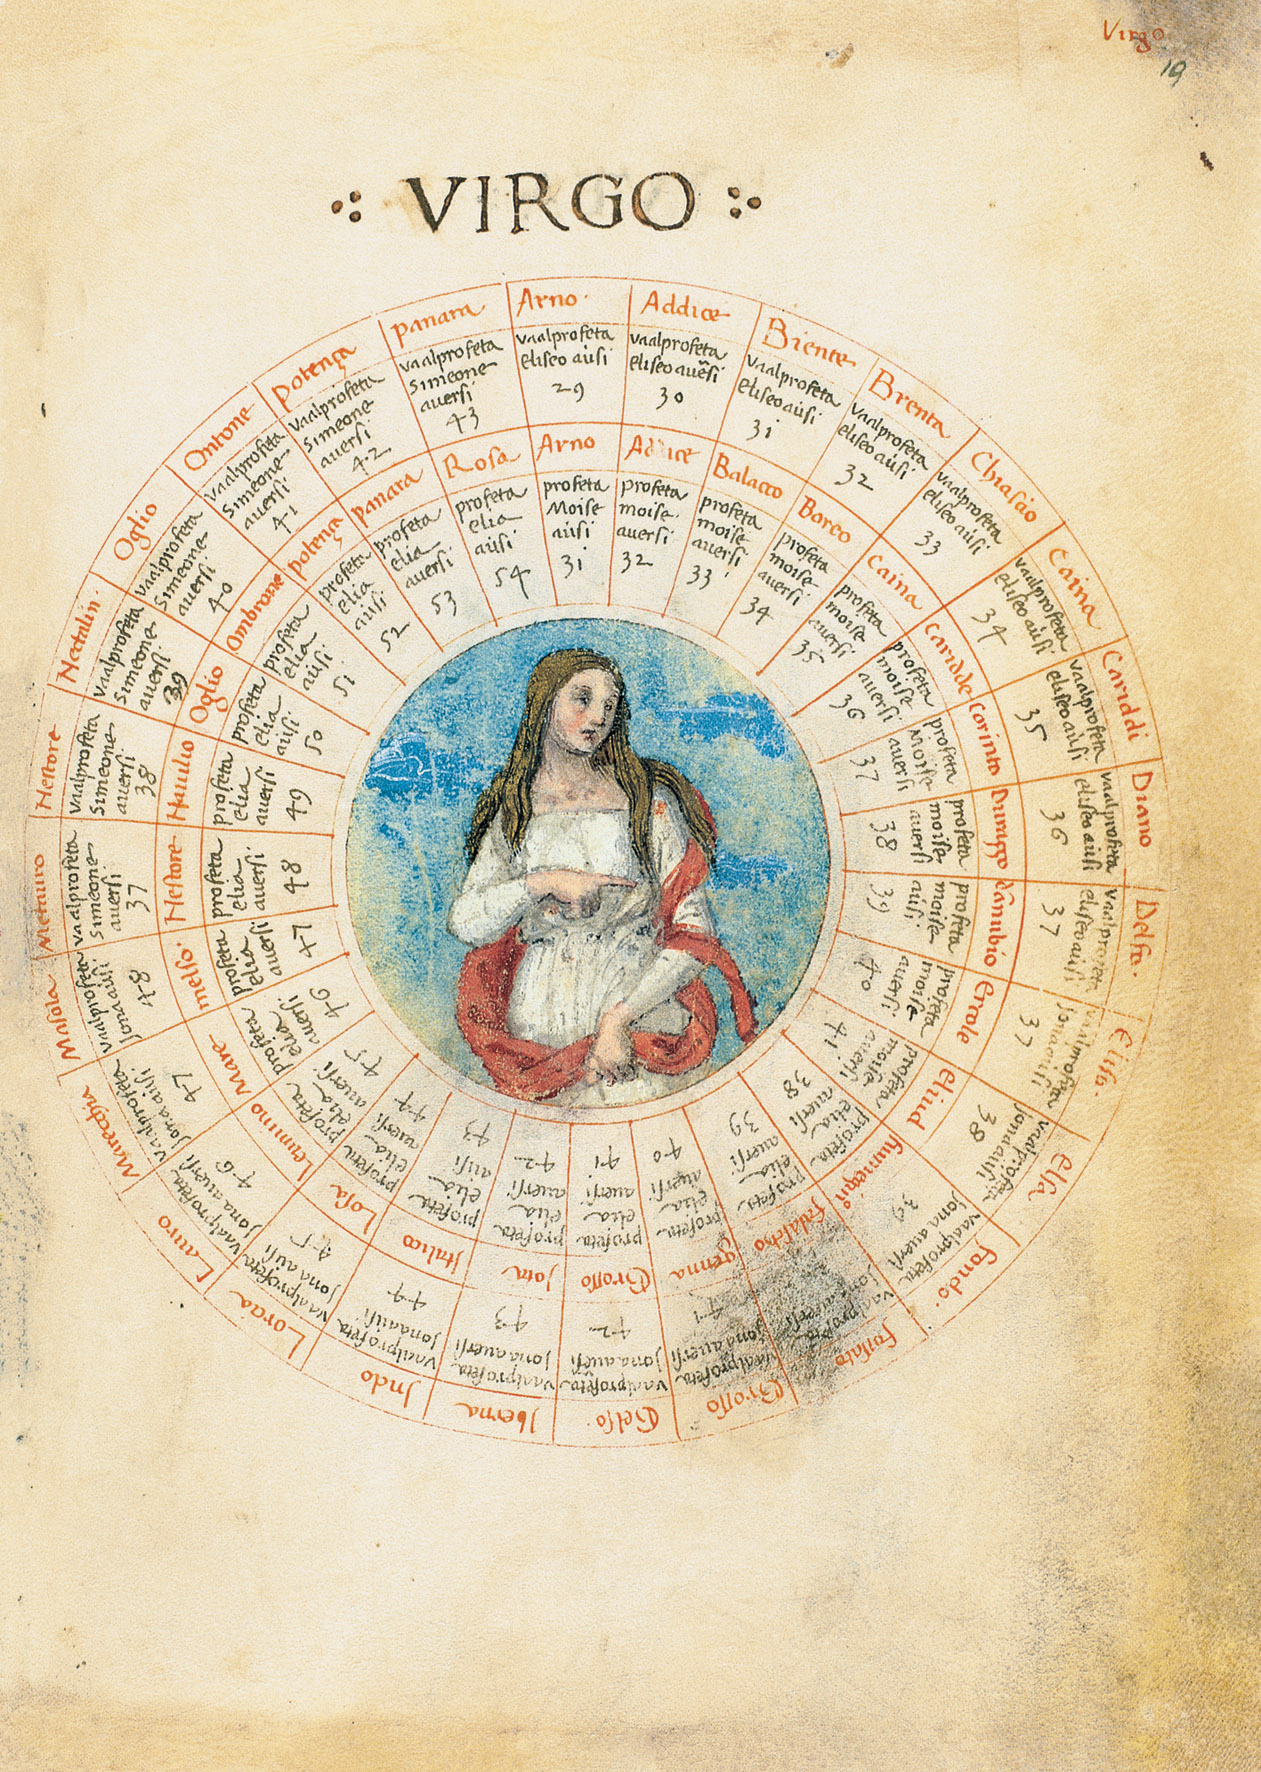 Virgo
19
VIRGO
Arno
vaalprofeta
eliseo aúsi
29
Addice
vaalprofeta
eliseo auẽsi
30
Biente
vaalprofeta
eliseo aúsi
3i
Brenta
vaalprofeta
eliseo aúsi
32
Chiasio
vaalprofeta
eliseo aúsi
33
Caina
vaalprofeta
eliseo aúsi
34
Cariddi
vaalprofeta
eliseo aúsi
35
Diano
vaalprofeta
eliseo aúsi
36
Delfo
vaalprofeta
eliseo aúsi
37
Eliso
vaalprofeta
jona aúsi
37
elsa
vaalprofeta
jona aúsi
38
fondo
vaalprofeta
jona auersi
39
vaalprofeta
Grosso
vaalprofeta
jona auersi
41
Gelso
vaalprofeta
jona auẽsi
42
Jberna
vaalprofeta
jona auersi
43
Jndo
vaalprofeta
jona aúsi
44
Loraa
vaalprofeta
jona aúsi
45
Lauro
vaalprofeta
jona auersi
46
Marecchia
vaalprofeta
jona aúsi
47
Masola
vaalprofeta
jona aúsi
48
Metauro
vaalprofeta
Simeone
auersi
37
Nestore
vaalprofeta
Simeone
auersi
38
Natalin
vaalprofeta
Simeone
auersi
39
Oglio
vaalprofeta
Simeone
auersi
40
Ontone
vaalprofeta
Simeone
auersi
41
potença
vaalprofeta
Simeone
auersi
42
panara
vaalprofeta
Simeone
auersi
43
Arno
profeta
Moise
aúsi
3i
Addice
profeta
moise
auersi
32
Balacco
profeta
moise
auersi
33
Boreo
profeta
moise
auersi
34
Caina
profeta
moise
auersi
35
Caridde
profeta
moise
auersi
36
Corinto
profeta
Moise
auersi
37
Durazzo
profeta
moise
auersi
38
danubio
profeta
moise
aúsi
39
Ercole
profeta
moise
auersi
40
eliud
profeta
moise
auersi
41
profeta
elia
auersi
38
profeta
elia
auersi
39
genna
profeta
elia
auersi
40
Grosso
profeta
elia
auersi
41
jota
profeta
elia
auersi
42
Jtalico
profeta
elia
aúsi
43
Losa
profeta
elia
auersi
44
profeta
elia
auersi
45
Mare
profeta
elia
auersi
46
melso
profeta
elia
auersi
47
Nestore
profeta
elia
auersi
48
Haulio
profeta
elia
auersi
49
Oglio
profeta
elia
aúsi
50
Ombrone
profeta
elia
aúsi
51
potença
profeta
elia
aúsi
52
panara
profeta
elia
auersi
53
Rosa
profeta
elia
aúsi
54